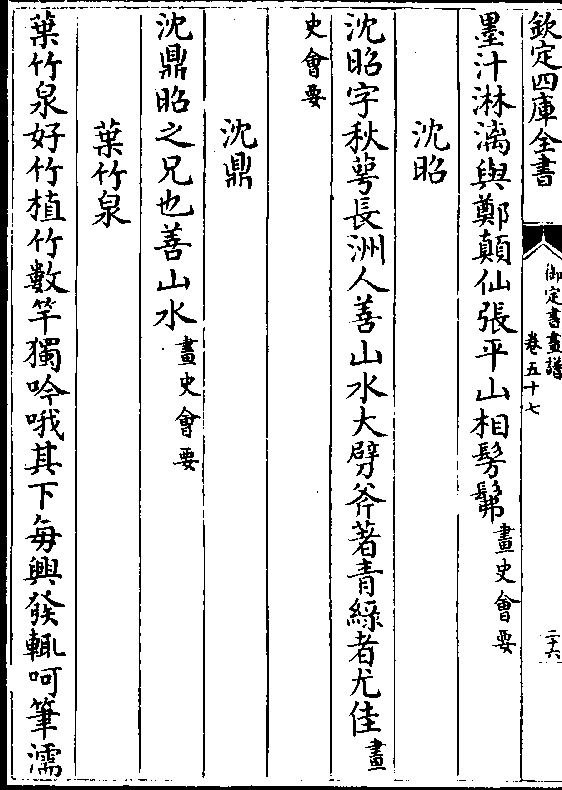 欽定四庫全書
御定書畫譜
卷五十七
二十六
墨汁淋漓與鄭顛仙張平山相髣髴畫史會要
沈昭
沈昭字秋蕚長洲人善山水大劈斧著青綠者尤佳畫
史會要
沈鼎
沈鼎昭之兄也善山水畫史會要
葉竹泉
葉竹泉好竹植竹數竿獨吟哦其下每興發輒呵筆濡